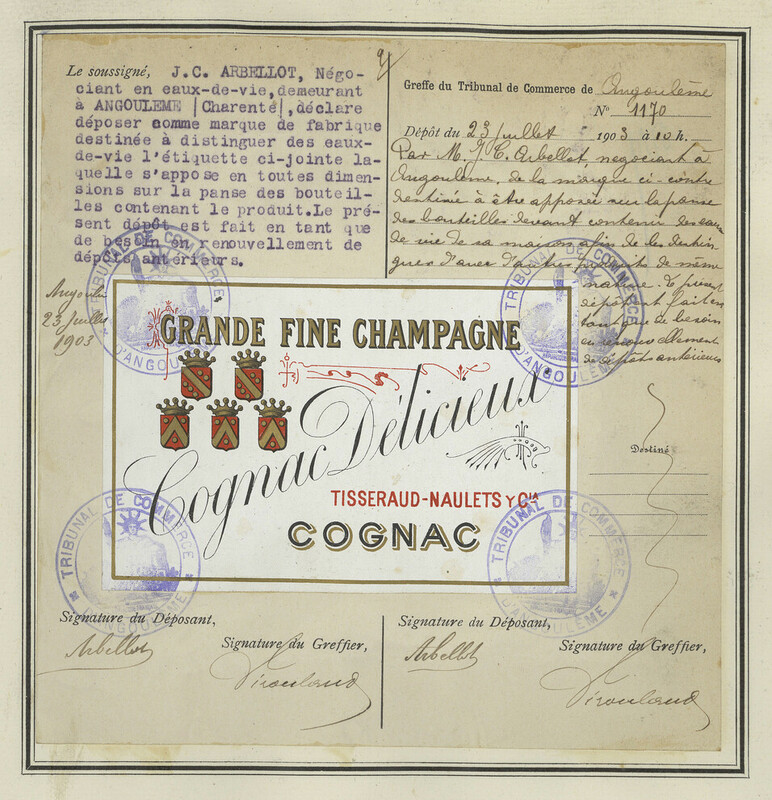 9/
Le soussigné, J.C. ARBELLOT, Négo-
ciant en eaux-de-vie, demeurant
à ANGOULEME |Charente|, déclare
déposer comme marque de fabrique
destinée à distinguer des eaux-
de-vie l'étiquette ci-jointe la-
quelle s'appose en toutes dimen-
sions sur la panse des bouteil-
les contenant le produit. Le pré-
sent dépôt est fait en tant que
de besoin en renouvellement de
dépôts antérieurs.
Angoulê
23 Juillet
1903
Greffe du Tribunal de Commerce de Angoulême
N° 1170
Dépôt du 23 Juillet 1903 à 10 h.
Par M. J. C. Arbellot, négociant à
Angoulême, de la marque ci-contre
destinée à être apposée sur la panse
des bouteilles devant contenir des eaux
de vie de sa maison afin de les distin-
guer d'avec d'autres produits de même
nature. Le présent
dépôt est fait en
tant que de besoin
en renouvellement
de dépôts antérieurs
Destiné
GRANDE FINE CHAMPAGNE
Cognac Délicieux
TISSERAUD-NAULETS Y CIA
COGNAC
TRIBUNAL DE COMMERCE D'ANGOULÊME
TRIBUNAL DE COMMERCE D'ANGOULÊME
TRIBUNAL DE COMMERCE D'ANGOULÊME
TRIBUNAL DE COMMERCE D'ANGOULÊME
Signature du Déposant,
Arbellot
Signature du Greffier,
Signature du Déposant,
Arbellot
Signature du Greffier,